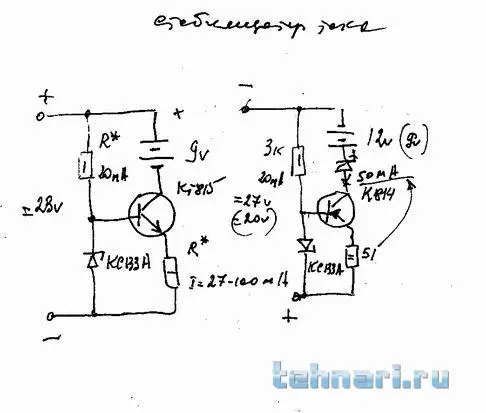 стабилизатор тока
+
R*
20mA
=28v
+
9v
КТ815
R*
КС133А
I=27-100mA
−
−
3к
20mA
=27v
(=20v)
12v (9v)
50mA
К814
КС133А
51
+
tehnari.ru